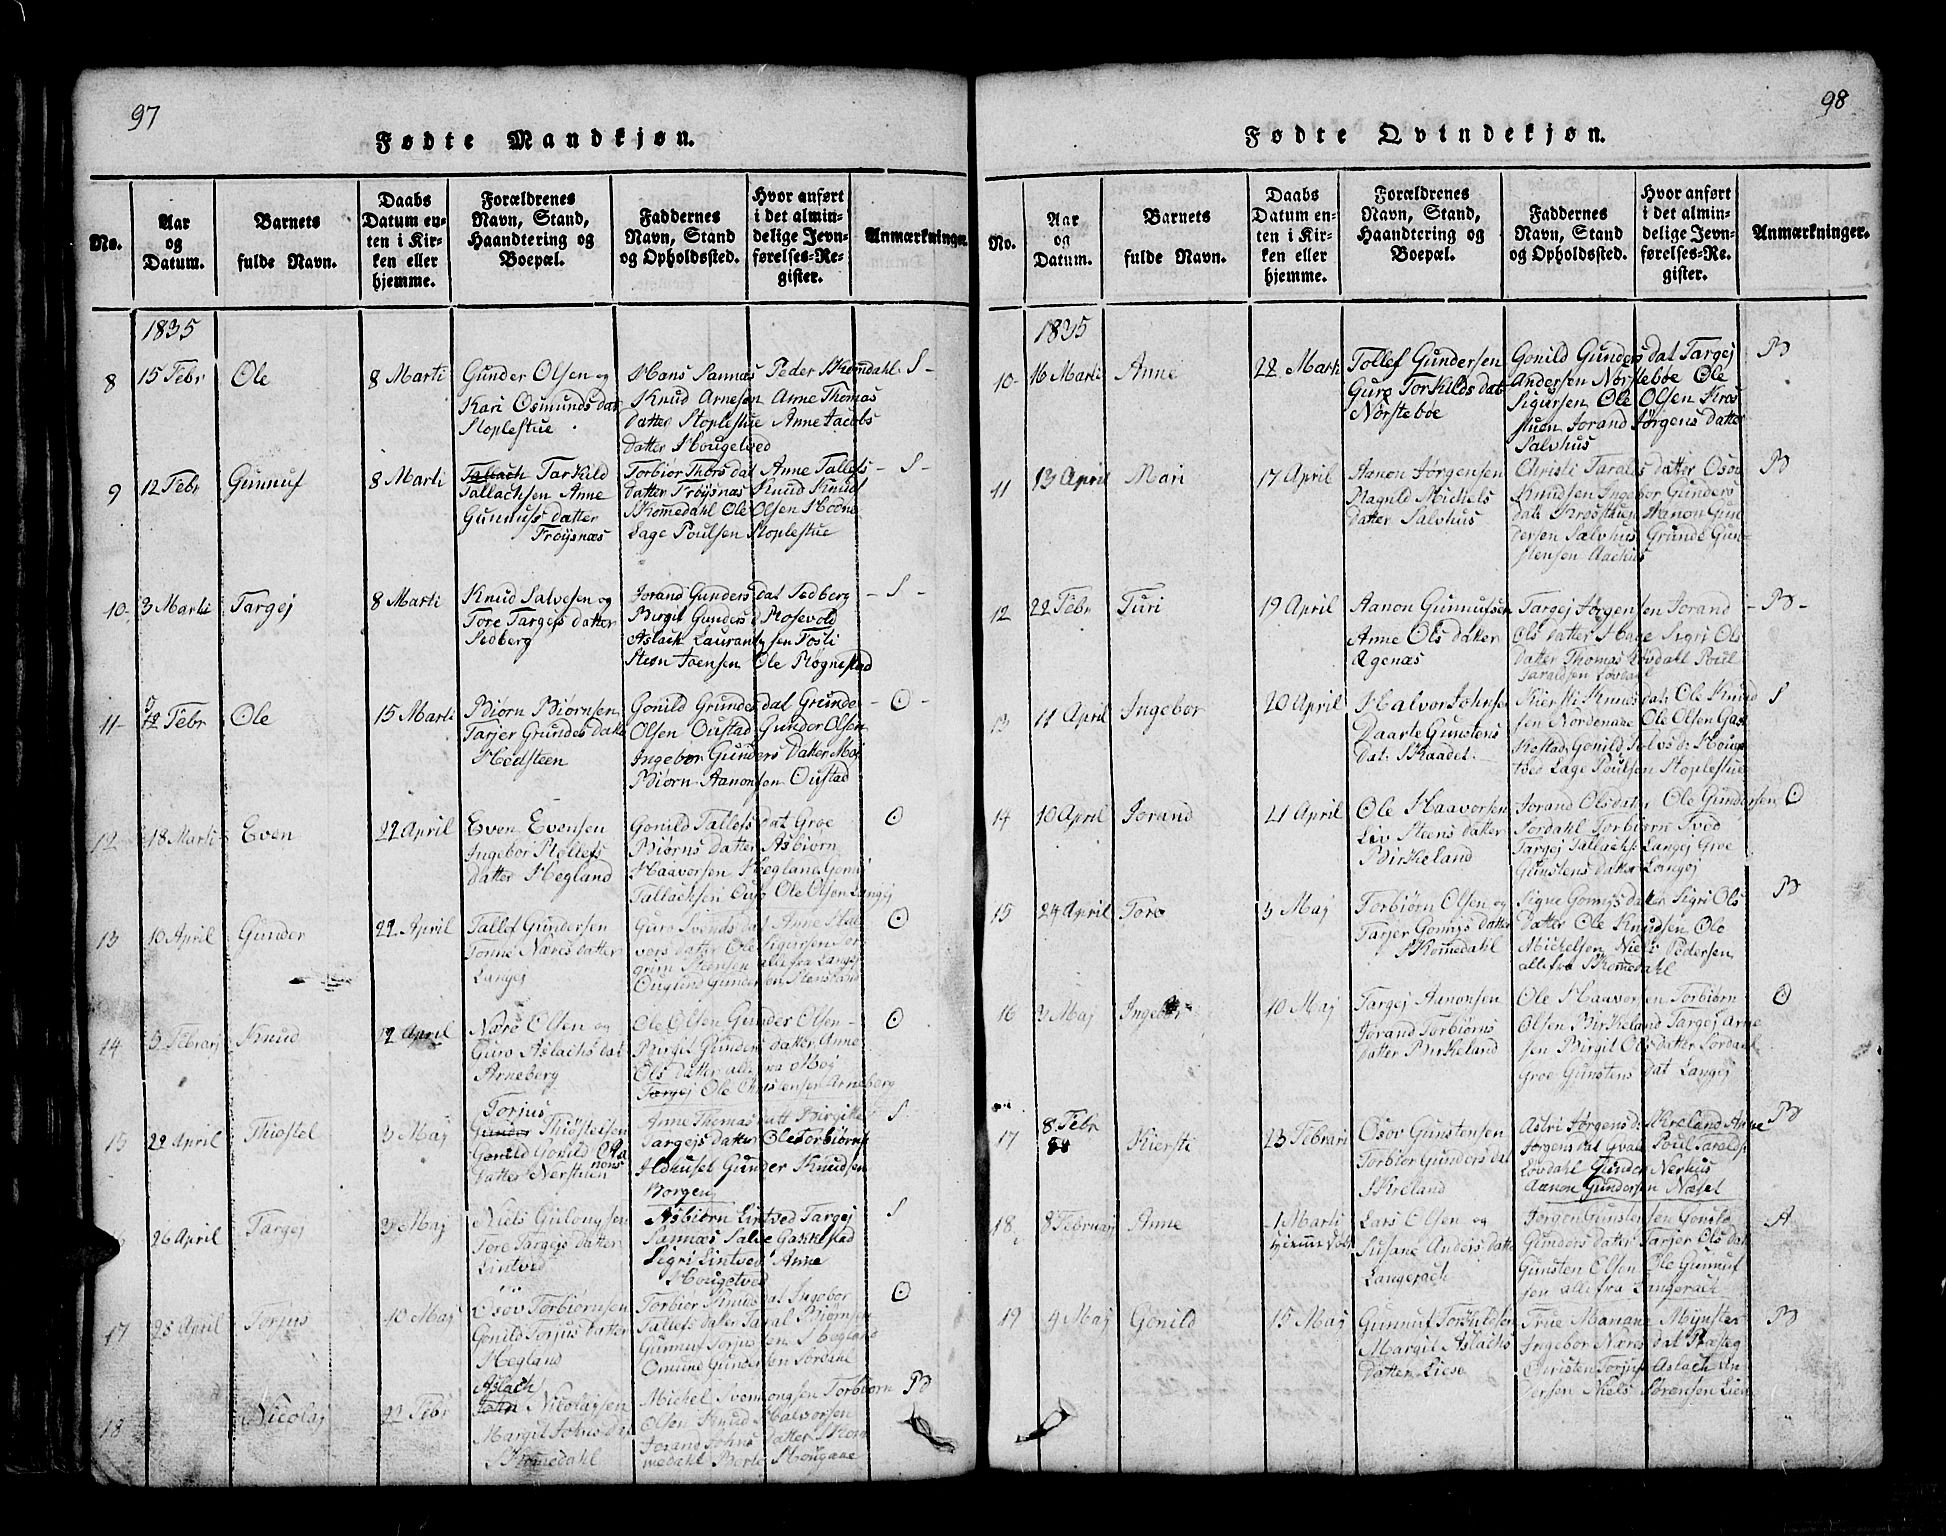 97
Fødte Mandkjøn.
No.
Aar
og
Datum.
Barnets
fulde Navn.
Daabs
Datum en-
ten i Kir-
ken eller
hjemme.
Forældrenes
Navn, Stand,
Haandtering og
Boepæl.
Faddernes
Navn, Stand
og Opholdssted.
Hvor anført
i det almin-
delige Jevn-
førelses-Re-
gister.
Anmærkninger.
1835
8
15 Febr
Ole
8 Marti
Gunder Olsen og
Kari Osmunds dat
Stoplestue
Hans Sannæs Peder Skomdahl
Knud Arnesen Anne Thomas
datter Stoplestue Anne Jacobs
datter Hougetved
S
9
12 Febr
Gunnuf
8 Marti
Tallach Tarkild
Tallachsen Anne
Gunnufs datter
Frøysnæs
Torbior Thors dat Anne Tallefs
datter Frøysnæs Knud Knud
Skomedahl Ole Olsen
Lage Poulsen Stoplestue
S
10
3 Marti
Targej
8 Marti
Knud Salvesen og
Tore Targejs datter
Sedberg
Jorand Gunders dat Sedberg
Birgit Gunders d Rosevold
Aslach Laurantysen Fosli
Sten Joensen Ole Røgnestad
S
11
12 Febr
Ole
15 Marti
Biørn Biørnsen
Tarjer Grundes datt
Hødsteen
Gonild Grundes dat Grunde
Olsen Oustad Gunder Olsen
Ingebor Gunders datter Moj
Biørn Aanonsen Oustad
O
12
18 Marti
Even
22 April
Even Evensen
Ingebor Rollefs
datter Hegland
Gonild Tallefs dat Groe
Biørns datter Asbiørn
Haavorsen Hegland
Tallachsen Ole Olsen Langej
O
13
10 April
Gunder
22 April
Tallef Gundersen
Tonne Nares datter
Langej
Guro Svends dat Anne Hal
vors datter Ole Sigursen Tor
grim Stensen alle fra Langej
Gundersen
O
14
5 Febrarj
Knud
12 April
Næro Olsen og
Guro Aslachs dat
Arneberg
Ole Olsen Gunder Olsen
Birgit Gunders datter Anne
Ols datter alle fra Moj
Targej Ole Christensen Arneberg
O
15
22 April
Thostel
3 Maj
Torjus
Gunder Thostelsen
Gonild Gonild Aa
nons
datter Nerstuen
Anne Thomas datt Birgitte
Targejs datter Ole Torbiørns
Aldhuset Gunder Knudsen
Borgen
S
26 April
Targej
3 Maj
Niels Gulongsen
Tore Targejs datter
Lintved
Asbiørn Lintved Targej
Sannæs Salve Gakkestad
Sigri Lintved Anne
Hougetved
S
17
25 April
Torjus
10 Maj
Osov Torbiørnsen
Gonild Torjus datter
Hegland
Torbior Knuds dat Ingebor
Tallefs datter Taral Biørnsen
Gunnuf Torjussen Hegland
Omund Gundersen Lordahl
O
18
Nicolaj
22 Febr
Aslach
John Nicolaysen
Margit Johns dat
Skomedahl
Michel Svennongsen Torbiørn
Olsen Knud Halvorsen
Jorand Johns datter Skom
medahl Berte Hougane
B
98
Fødte Qvindekjøn.
No.
Aar
og
Datum.
Barnets
fulde Navn.
Daabs
Datum en-
ten i Kir-
ken eller
hjemme.
Forældrenes
Navn, Stand,
Haandtering og
Boepæl.
Faddernes
Navn, Stand
og Opholdssted.
Hvor anført
i det almin-
delige Jevn-
førelses-Re-
gister.
Anmærkninger.
1835
10
16 Marti
Anne
22 Marti
Tollef Gundersen
Guro Torkilds dat
Norstebøe
Gonild Gunders dat Targej
Andersen Norstebøe Ole
Sigursen Ole Olsen Kros
stuen Jorand Jørgens datter
Salvhus
B
11
13 April
Mari
17 April
Aanon Jørgensen
Ragnild Mickels
datter Salvhus
Christi Tarals datter Osov
Knudsen Ingebor Gunders
datt Krosshaug Aanon Gun
dersen Salvhus Grunde Gun
stensen Aachus
B
12
22 Febr
Turi
19 April
Aanon Gunnufsen
Anne Ols datter
Ægenæs
Targej Jørgensen Jorand
Ols datter Hage Sigri Ols
datter Thomas Løvdahl Poul
Taraldsen Løvdahl
B
13
11 April
Ingebor
20 April
Halvor Johnsen
Daarte Gunstens
dat. Skaadet
Kiersti Knuds dat. Ole Knud
sen Nordenade Ole Olsen Gak
kestad Gonild Salvs d: Houge
tved Lage Poulsen Stoplestue
S
14
10 April
Jorand
21 April
Ole Haavorsen
Liv Steens datter
Birkeland
Jorand Olsdatter Ole Gundersen
Lordahl Torbiørn Tved
Targej Tallachs: Langej Groe
Gunstens datter Langej
O
15
24 April
Tore
3 Maj
Torbiørn Olsen og
Tarjer Gonnys datter
Skomedahl
Signe Gonnys datter Sigri Ols
datter Ole Knudsen Ole
Michelsen Niels Pedersen
alle fra Skomedahl
B
16
3 Maj
Ingebor
10 Maj
Targej Aanonsen
Jorand Torbiørns
datter Birkeland
Ole Haavorsen Torbiørn
Olsen Birkeland Targej Arne
sen Birgit Ols datter Lordahl
Groe Gunstens dat Langej
O
17
8 Febr
Kiersti
23 Febrari
Osov Gunstensen
Torbior Gunders dat
Skreland
Astri Jørgens d: Skreland Anne
Jørgens dat Qvale Poul Taralds
Løvdahl Gunder Nerhus
Aanon Gundersen Næset
B
18
8 Februarj
Anne
1 Marti
hiemme døbt
Lars Olsen og
Susane Anders datte
Langerach
Jørgen Gunstensen Gonild
Gunders datter Tarjer Ols dat
Gunsten Olsen Ole Gunnuf
sen alle fra Langerach
A
19
4 Maj
Gonild
15 Maj
Gunnuf Torkildsen
Margit Aslachs
datter Liese
Frue Mariane Mynster
Ingebor Næres dat Præsteg
Christen Torjus Aslach An
dersen Niels Sørensen Liese
B